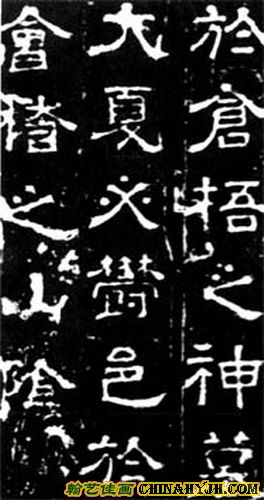 於倉梧之神墓
大夏必鬱邑於
會稽之山陰
翰艺佳画 CHINAHYJH.COM